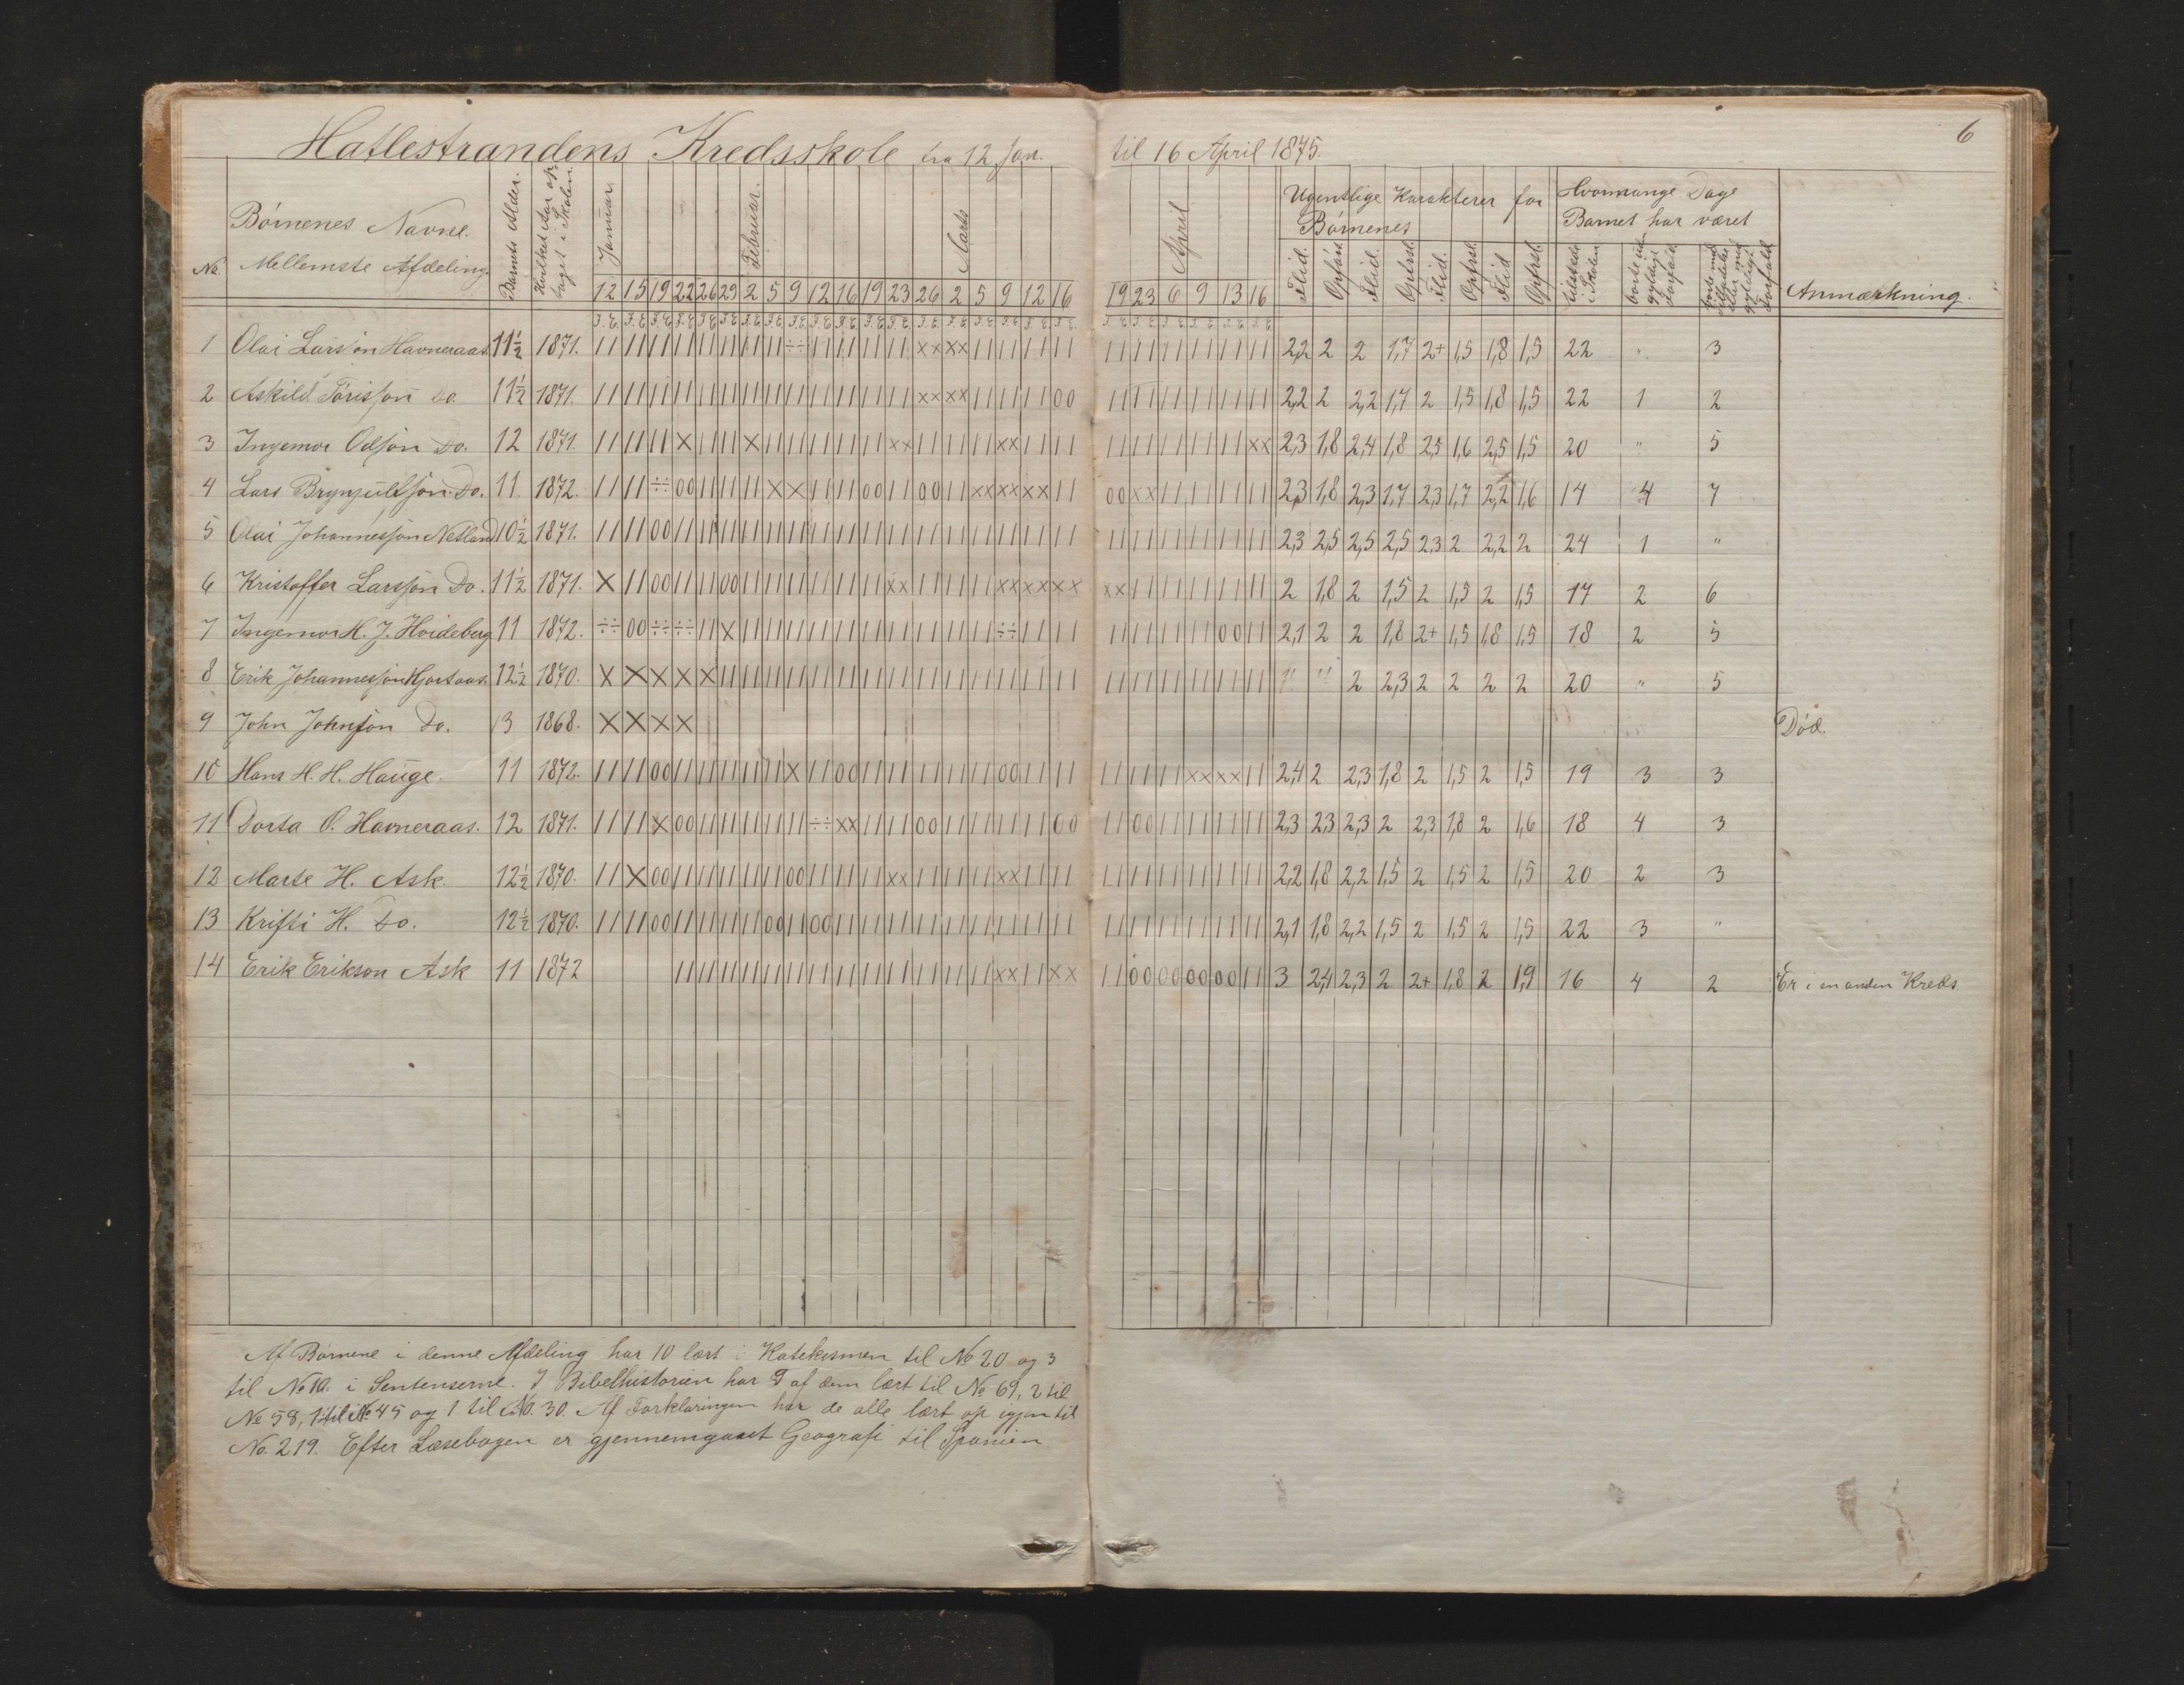 6
Hatlestrandens Kredsskole fra 12 Jan. til 16 April 1875.
No. Børnenes Navne. Mellemste Afdeling. Barnets Alder. Hvilket Aar optaget i Skolen. Januar. Februar. Marts April Ugentlige Karakterer for Børnenes Hvormange Dage Barnet har været Anmærkning.
12 15 19 22 26 29 2 5 9 12 16 19 23 26 2 5 9 12 16 19 23 6 9 13 16 Flid. Opførs. Flid. Opfrsl. Flid. Opfrsl. Flid Opfrsl. tilstede i Skolen borte uden gyldigt Forfald borte med Tilladelse eller med gyldigt Forfald
1 Olai Larsson Havneraas. 11½ 1871. 2,2 2 2 1,7 2+ 1,5 1,8 1,5 22 " 3
2 Askild Törisson Do. 11½ 1871. 2,2 2 2,2 1,7 2 1,5 1,8 1,5 22 1 2
3 Ingemor Odsön Do. 12 1871. 2,3 1,8 2,4 1,8 2,5 1,6 2,5 1,5 20 " 5
4 Lars Brynjulfsön. Do. 11. 1872. 2,3 1,8 2,3 1,7 2,3 1,7 2,2 1,6 14 4 7
5 Olai Johannesson Netland 10½ 1871. 2,3 2,5 2,5 2,5 2,3 2 2,2 2 24 1 "
6 Kristoffer Larsson Do. 11½ 1871. 2 1,8 2 1,5 2 1,5 2 1,5 17 2 6
7 Ingemor H. J. Hoideberg 11 1872. 2,1 2 2 1,8 2+ 1,5 1,8 1,5 18 2 5
8 Erik Johannesson Hjortaas. 12½ 1870. " " 2 2,3 2 2 2 2 20 " 5
9 John Johnson Do. 13 1868. Död.
10 Hans H. H. Hauge. 11 1872. 2,4 2 2,3 1,8 2 1,5 2 1,5 19 3 3
11 Dorta O. Havneraas. 12 1871. 2,3 2,3 2,3 2 2,3 1,8 2 1,6 18 4 3
12 Marte H. Ask. 12½ 1870. 2,2 1,8 2,2 1,5 2 1,5 2 1,5 20 2 3
13 Kristi H. Do. 12½ 1870. 2,1 1,8 2,2 1,5 2 1,5 2 1,5 22 3 "
14 Erik Erikson Ask 11 1872 3 2,4 2,3 2 2+ 1,8 2 1,9 16 4 2 Er i en anden Kreds
Af Børnene i denne Afdeling har 10 lært i Katekismen til No 20 og 3
til No 10. i Sentenserne. I Bibelhistorien har 9 af dem lært til No 69, 2 til
No 58, 1 til No 45 og 1 til No. 30. Af Forklaringen har de alle lært op igjen til
No. 219. Efter Læsebogen er gjennemgaaet Geografi til Spanien